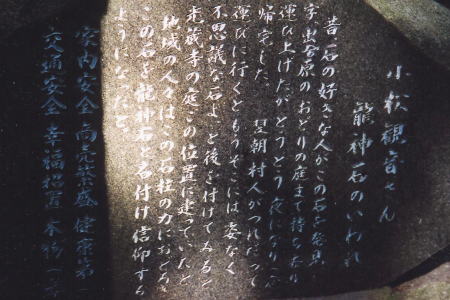 小松観音さん
龍神石のいわれ
昔石の好きな人がこの石を発見
字出合原のおどりの庭まで持ち
運び上げたがとうとう夜になり一応
帰宅した 翌朝村人がつれだって
運びに行くともうそこには姿なく
不思議な石よと後を付けてみると
蔵寺の庭この位置に建っていたと
地域の人々はこの石柱の力におどろき
この石を龍神石と名付け信仰する
ようになったと
家内安全 商売繁盛 健康第一
交通安全 幸福